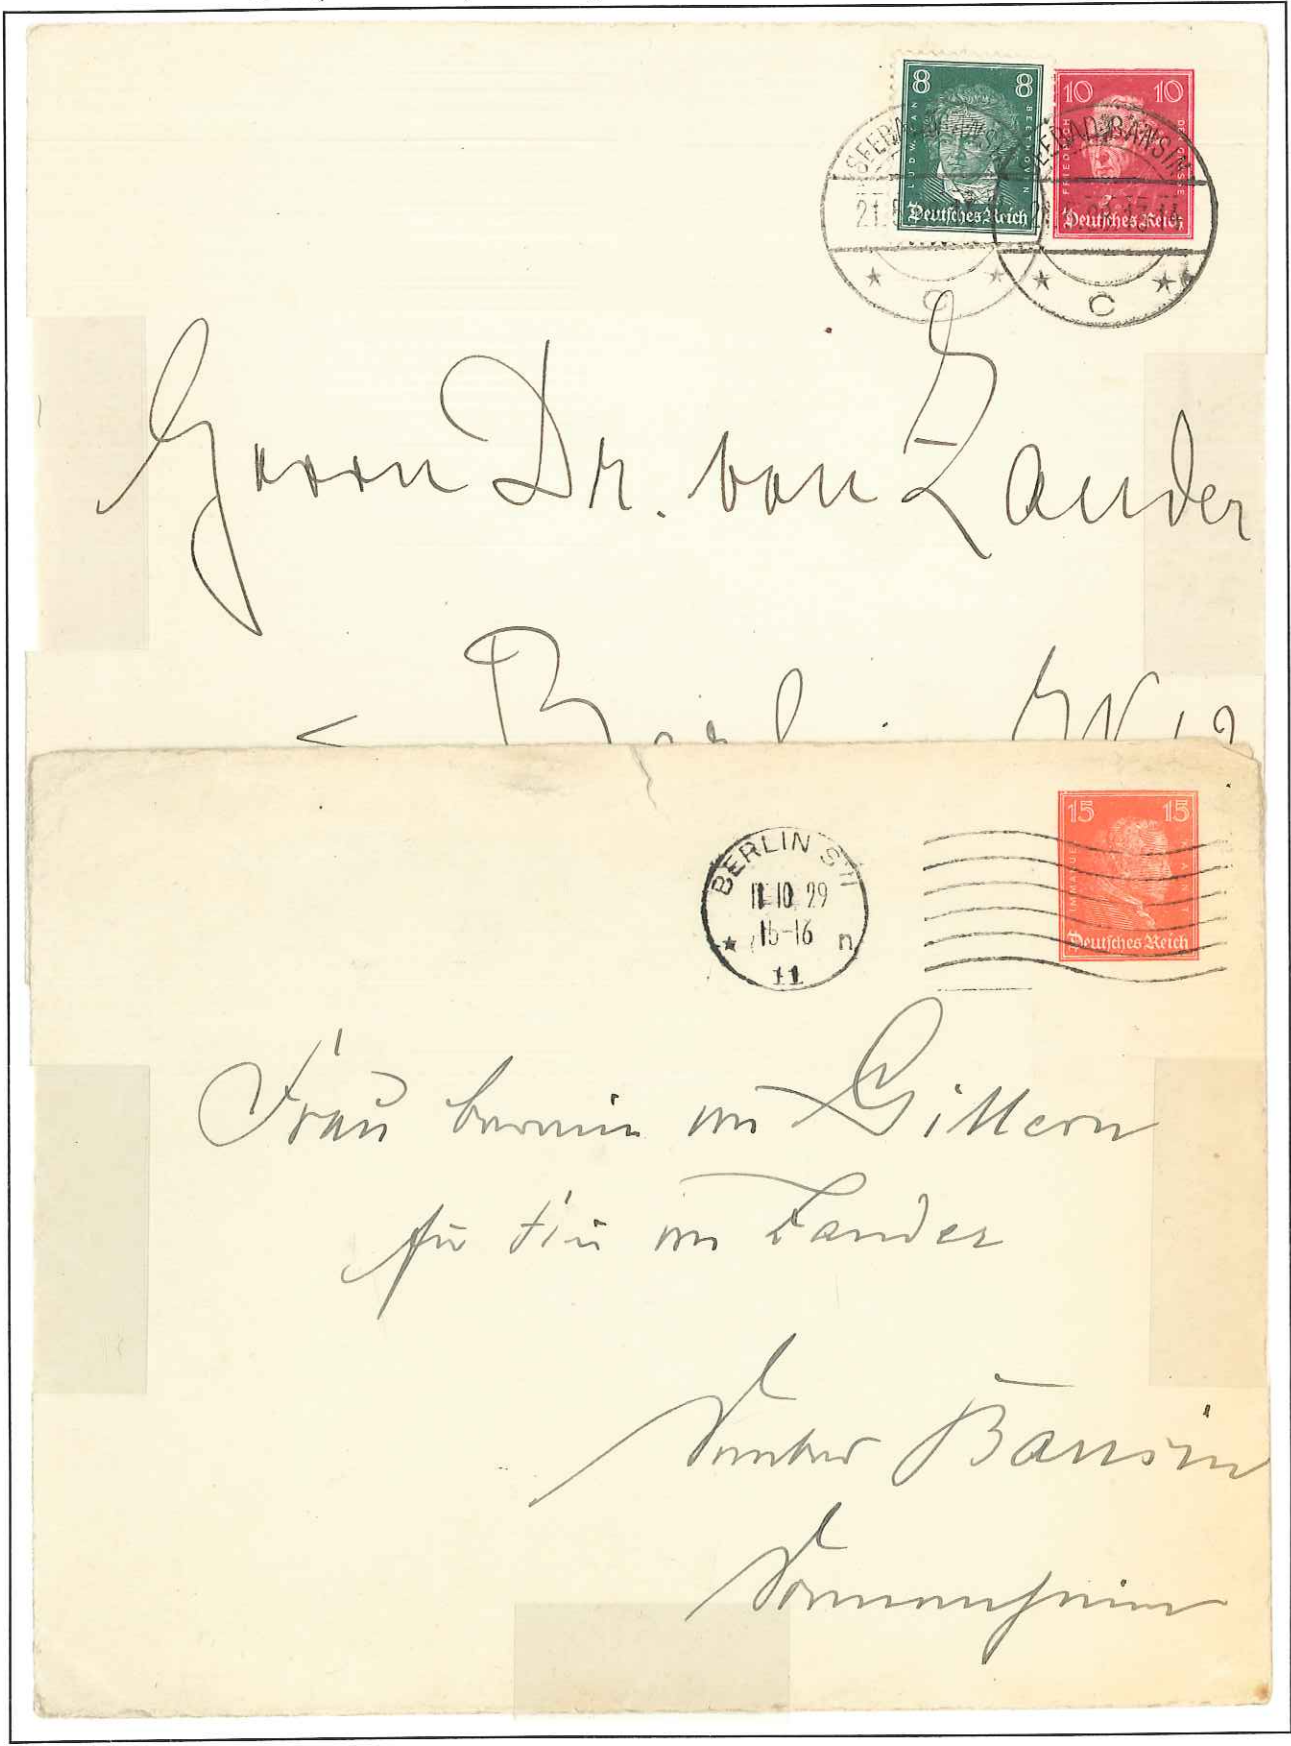 8 8
LUDW. VAN BEETHOVEN
Deutsches Reich
10 10
FRIEDRICH DER GROSSE
Deutsches Reich
SEEBAD BANSIN
SEEBAD BANSIN
C
C
Herrn Dr. von Zander
Berlin NW
15 15
IMMANUEL KANT
Deutsches Reich
BERLIN
11.10.29
15-16
* n
11
Frau von Gittern
für Frau von Zander
Bansin
Sonnenheim